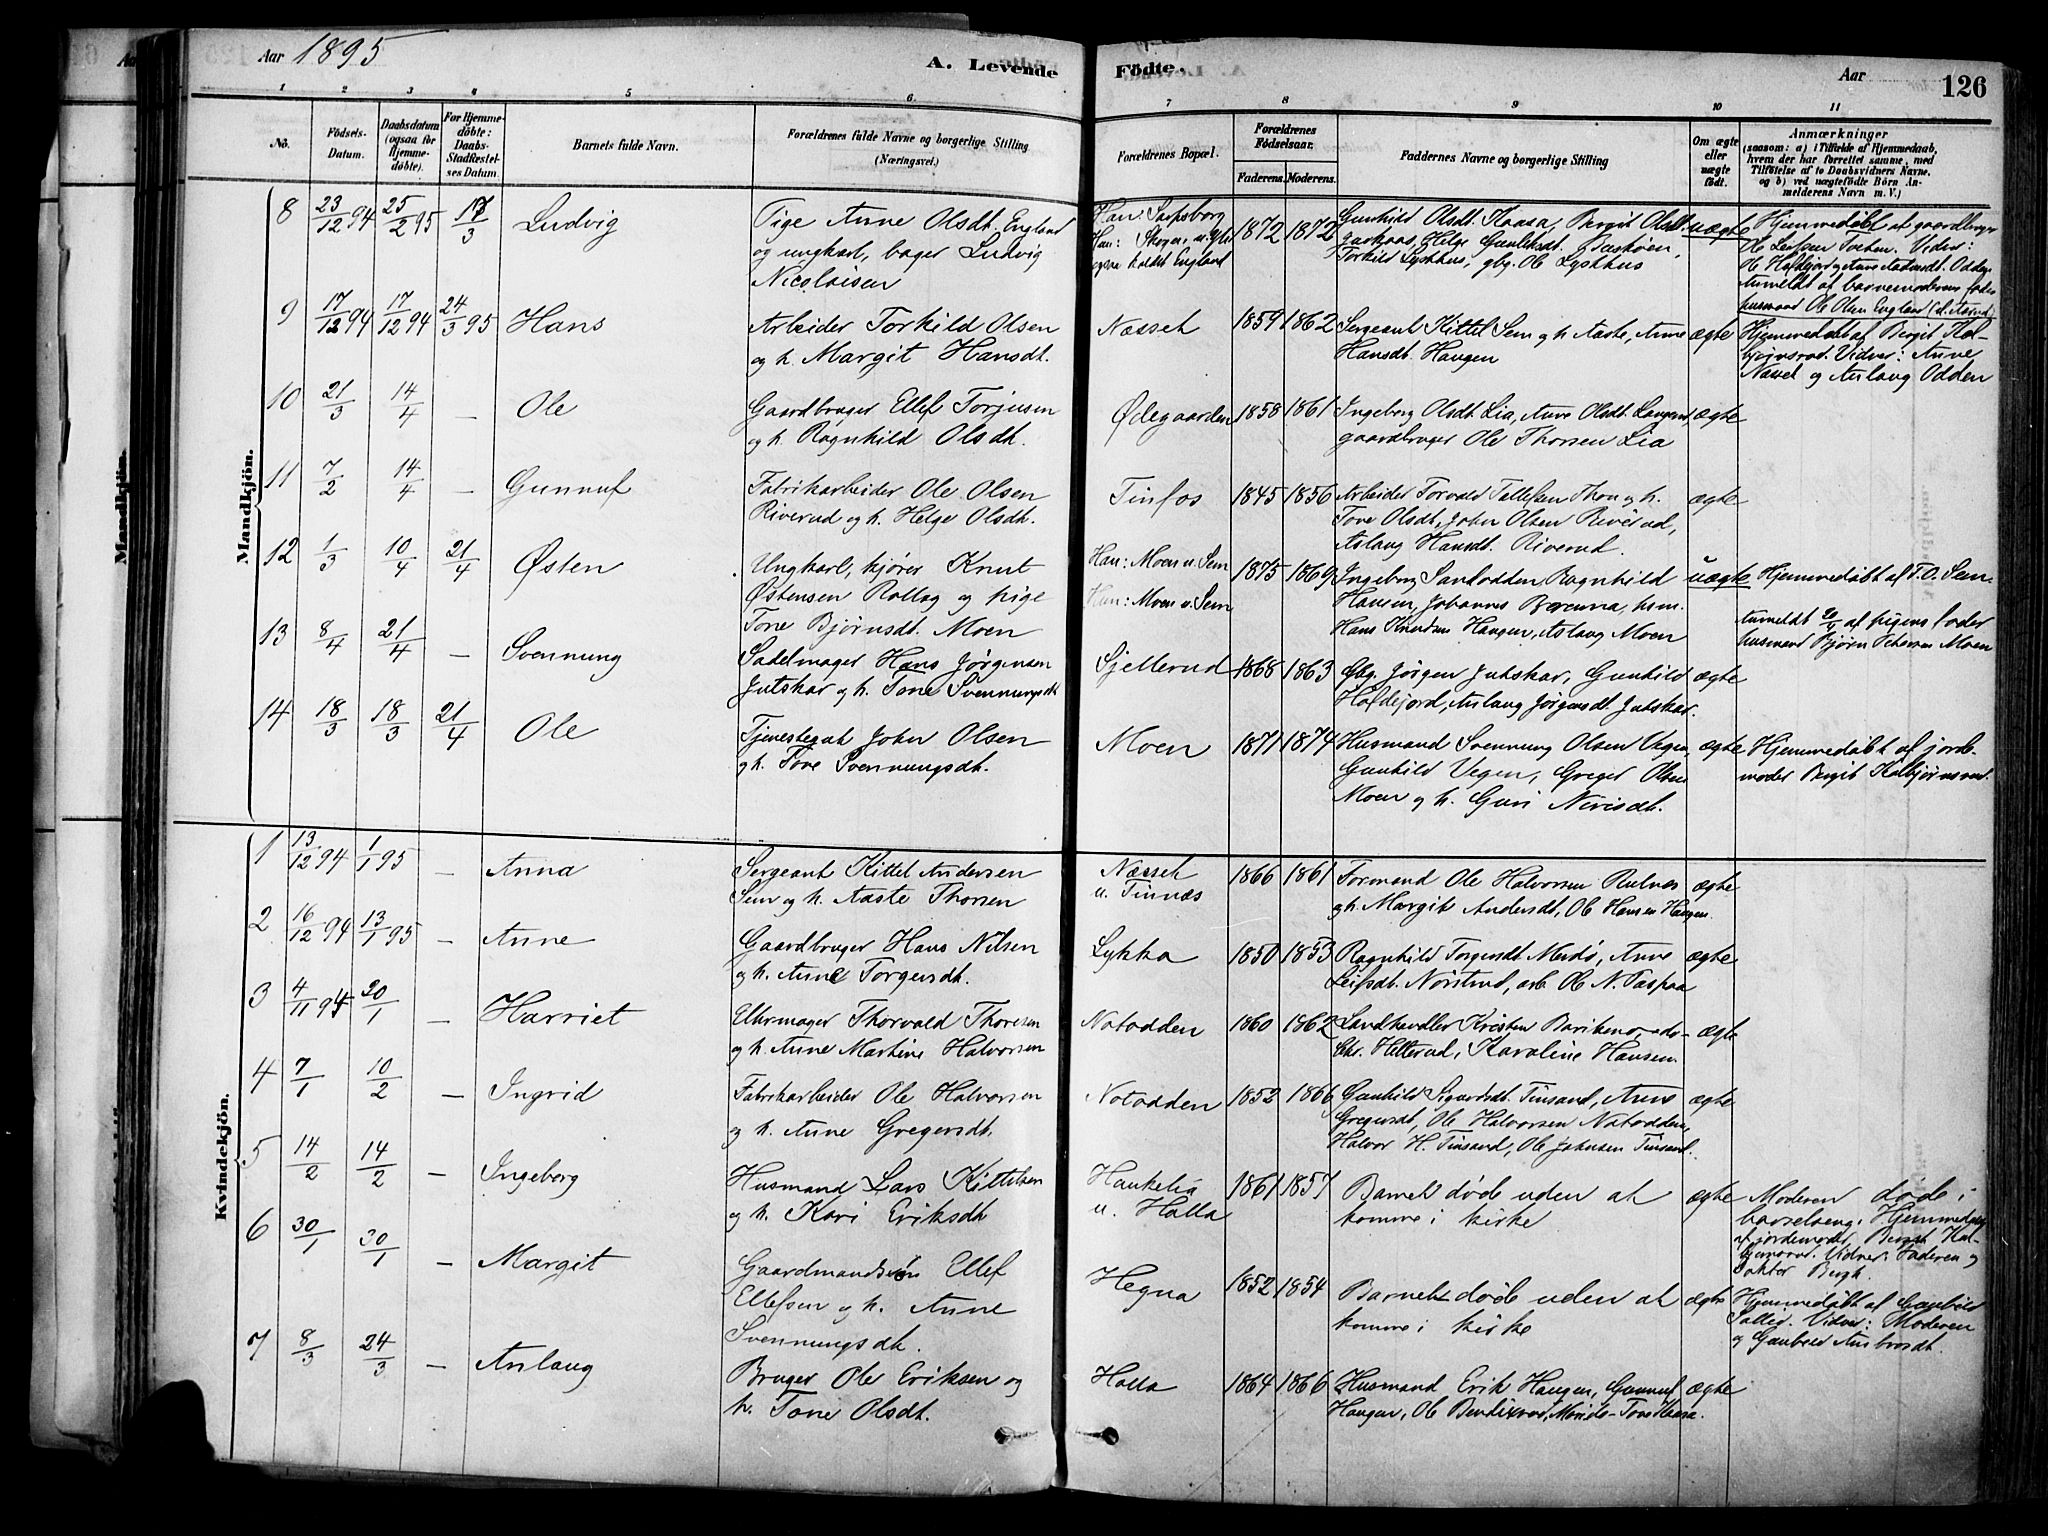 Aar 1895
A. Levende
Födte.
Aar
126
1 2 3 4 5 6 7 8 9 10 11
No.
Födsels-
Datum.
Daabsdatum
(ogsaa for
Hjemme-
døbte).
For Hjemme-
døbte:
Daabs-
Stadfæstel-
ses Datum.
Barnets fulde Navn.
Forældrenes fulde Navne og borgerlige Stilling
(Næringsvei.)
Forældrenes Bopæl.
Forældrenes
Fødselsaar.
Faderens. Moderens.
Faddernes Navne og borgerlige Stilling
Om ægte
eller
uægte
født.
Anmærkninger
(saasom: a) i Tilfælde af Hjemmedaab,
hvem der har forrettet samme, med
Tilføielse af to Daabsvidners Navne,
og b) ved uægtefødte Børn An-
melderens Navn m. V.)
Mandkjön.
8 23/12 94 25/2 95 17/3 Ludvig
Pige Anne Olsdt. England
og ungkarl, bager Ludvig
Nicolaisen
Han: Sarpsborg
1872 1872
Gunhild Olsdt. Kaasa, Bergit Olsdt.
Torkild Lysthus, gbg. Ole Lysthus
uægte
Hjemmedøbt af gaardbruger
Ole Leifsen Tveten. Vidner:
Anmeldt af barnemoderens fader
husmand Ole Olsen England
9 17/12 94 17/12 94 24/3 95 Hans
Arbeider Torkild Olsen
og h. Margit Hansdt.
Næsset
1859 1862
Sergeant Kittel Sem og h. Aaste, Anne
Hansdt. Haugen
ægte
Hjemmedøbt af Bergit Kol-
bjørnsrud. Vidner: Anne
Næsset og Aslaug Odden
10 21/3 14/4 – Ole
Gaardbruger Ellef Torjusen
og h. Ragnhild Olsdt.
Ødegaarden
1858 1861
Ingeborg Olsdt. Lia, Anne Olsdt. Haugen,
gaardbruger Ole Thorsen Lia
ægte
11 7/2 14/4 – Gunnuf
Fabrikarbeider Ole Olsen
Riverud og h. Helge Olsdt.
Tinfos
1845 1856
Arbeider Torvald Tellefsen Thon og h.
Tove Olsdt., John Olsen Riverud,
Aslaug Hansdt. Riverud.
ægte
12 1/3 10/4 21/4 Østen
Ungkarl, kjører Knut
Østensen Rollag og pige
Tone Bjørnsdt. Moen
Han: Moen u. Sem
Hun: Moen u. Sem
1875 1869
Ingeborg Sandodden, Ragnhild
Hansen, Johannes, hsm.
Hans Knudsen Haugen, Aslaug Moen
uægte
Hjemmedøbt af T. O. Sem.
Anmeldt af pigens fader
husmand Bjørn Petersen Moen
13 8/4 21/4 – Svennung
Sadelmager Hans Jørgensen
Jutskar og h. Tone Svennungsdt.
Sjellerud
1868 1863
Gbg. Jørgen Jutskar, Gunhild
Hofdejord, Aslaug Jørgensdt. Jutskar.
ægte
14 18/3 18/3 21/4 Ole
Tjenestegut John Olsen
og h. Tove Svennungsdt.
Moen
1871 1874
Husmand Svennung Olsen Vegen,
Gunhild Vegen, Greger Olsen
Moen og h. Guri Nirisdt.
ægte
Hjemmedøbt af jorde-
moder Bergit Kolbjørnsrud.
Kvindekjön.
1 13/12 94 1/1 95 – Anna
Sergeant Kittel Andersen
Sem og h. Aaste Thorsen
Næsset
u. Tinnæs
1866 1861
Formand Ole Halvorsen Rulnæs
og h. Margit Andersdt., Ole Hansen Haugen.
ægte
2 16/12 94 13/1 95 – Anne
Gaardbruger Hans Nilsen
og h. Anne Torgersdt.
Lykka
1850 1853
Ragnhild Torgersdt. Merdø, Anne
Leifsdt. Nørstrud, arb. Ole N. Taspaa
ægte
3 4/11 94 20/1 – Harriet
Uhrmager Thorvald Thoresen
og h. Anne Martine Halvorsen
Notodden
1860 1862
Landhandler Kristen
Chr. Hillerud, Karoline Hansen.
ægte
4 7/1 10/2 – Ingrid
Fabrikarbeider Ole Halvorsen
og h. Anne Gregersdt.
Notodden
1852 1866
Gunhild Sigurdsdt. Tinsand, Anne
Gregersdt., Ole Halvorsen Notodden,
Halvor H. Tinsand, Ole Johnsen Tinsand.
ægte
5 14/2 14/2 – Ingeborg
Husmand Lars Kittelsen
og h. Kari Eriksdt.
Haukelia
u. Halla
1861 1857
Barnet døde uden at
komme i kirke
ægte
Moderen døde i
barselseng. Hjemmedøbt
af jordemoder Bergit Kol-
bjørnsrud. Vidner: Faderen og
Doktor Bergh.
6 30/1 30/1 – Margit
Gaardmandssøn Ellef
Ellefsen og h. Anne
Svennungsdt.
Hegna
1852 1854
Barnet døde uden at
komme i kirke
ægte
Hjemmedøbt af Gunhild
Vidner: Moderen
og Gunhild
7 8/3 24/3 – Aslaug
Bruger Ole Eriksen og
h. Tone Olsdt.
Halla
1864 1866
Husmand Erik Haugen, Gunnuf
Haugen, Tone Kaasa.
ægte